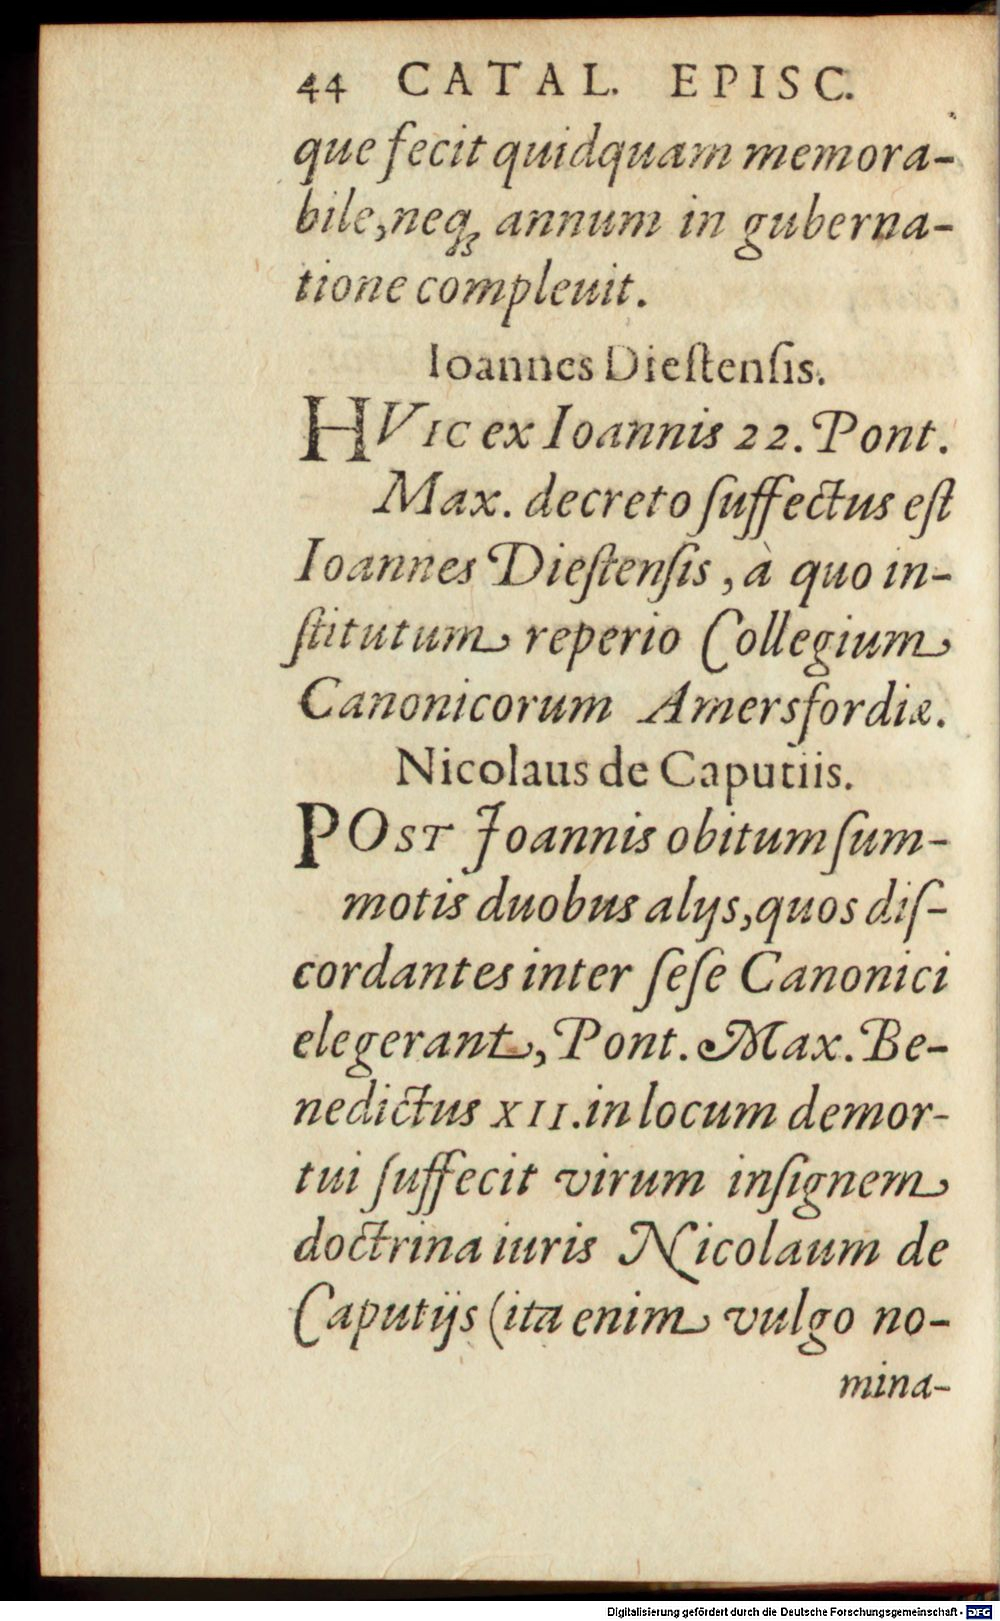 44 CATAL. EPISC.
que fecit quidquam memora-
bile, neqꝫ annum in guberna-
tione compleuit.
Ioannes Dieſtenſis.
HVIC ex Ioannis 22. Pont.
Max. decreto ſuffectus eſt
Ioannes Dieſtenſis, à quo in-
ſtitutum reperio Collegium
Canonicorum Amersfordiæ.
Nicolaus de Caputiis.
POST Joannis obitum ſum-
motis duobus alijs, quos diſ-
cordantes inter ſeſe Canonici
elegerant, Pont. Max. Be-
nedictus XII. in locum demor-
tui ſuffecit virum inſignem
doctrina iuris Nicolaum de
Caputijs (ita enim vulgo no-
mina-
Digitalisierung gefördert durch die Deutsche Forschungsgemeinschaft - DFG